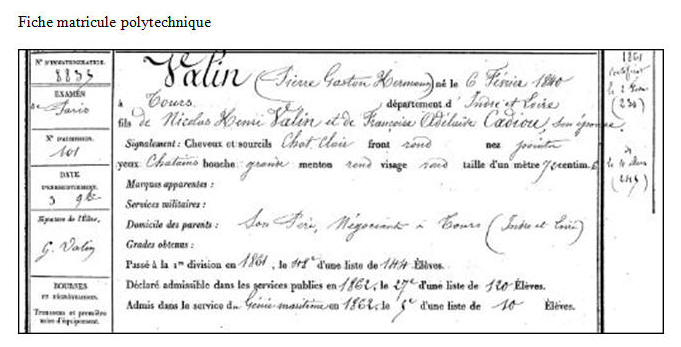 Fiche matricule polytechnique
N° D'IMMATRICULATION.
8835
EXAMEN
de Paris
N° D'ADMISSION.
101
DATE
D'ENREGISTREMENT.
3 9bre
Signature de l'Élève.
G. Valin
BOURSES
Trousseau et première
mise d'équipement.
Valin (Pierre Gaston Hermann) né le 6 Février 1840
à Tours, département d' Indre et Loire
fils de Nicolas Henri Valin et de Françoise Adélaide Cadiou, son épouse.
Signalement : Cheveux et sourcils Chat Clair front rond nez pointu
yeux Chatains bouche grande menton rond visage rond taille d'un mètre centim.
Marques apparentes :
Services militaires :
Domicile des parents : Son Père, Négociant à Tours (Indre et Loire)
Grades obtenus :
Passé à la 1re division en 1861, le d'une liste de 144 Élèves.
Déclaré admissible dans les services publics en 1862, le 27e d'une liste de 120 Élèves.
Admis dans le service du Génie maritime en 1862, le 5e d'une liste de 10 Élèves.
1861
le 2
(230)
le